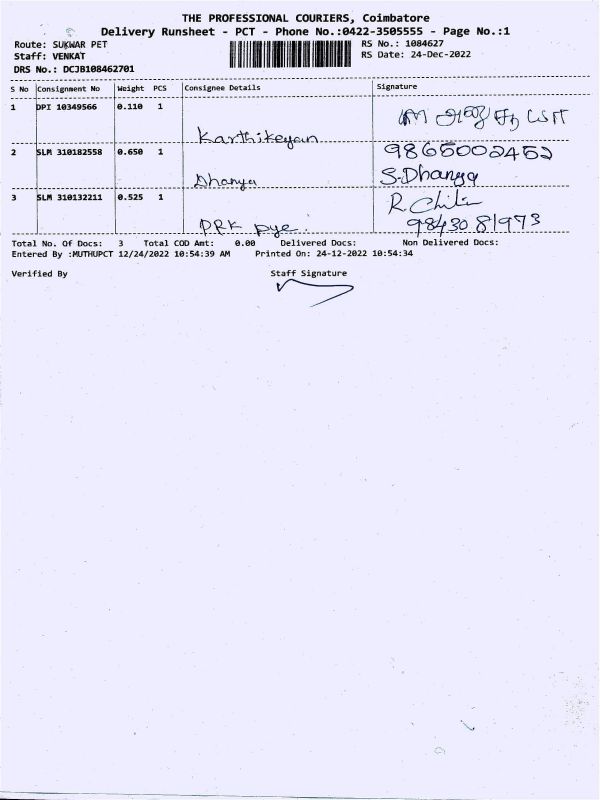 THE PROFESSIONAL COURIERS, Coimbatore
Delivery Runsheet - PCT - Phone No.:0422-3505555 - Page No.:1
Route: SUKWAR PET RS No.: 1084627
Staff: VENKAT RS Date: 24-Dec-2022
DRS No.: DCJB108462701
S No Consignment No Weight PCS Consignee Details Signature
1 DPI 10349566 0.110 1
Karthikeyan
2 SLM 310182558 0.650 1 9865002452
Dhanya S.Dhanya
3 SLM 310132211 0.525 1 R.
DRK Dye. 9843081973
Total No. Of Docs: 3 Total COD Amt: 0.00 Delivered Docs: Non Delivered Docs:
Entered By :MUTHUPCT 12/24/2022 10:54:39 AM Printed On: 24-12-2022 10:54:34
Verified By Staff Signature